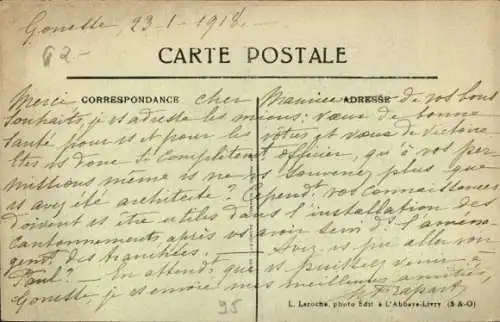 Gonesse, 23-1-1918.
G2-
CARTE POSTALE
CORRESPONDANCE
ADRESSE
Merci cher Maurice de vos bons
souhaits, je vs adresse les miens: vœux de bonne
santé pour vs et pour les vôtres et vœux de victoire
Etes vs donc si complètement officier, qu'à vos per
missions même vs ne vs souvenez plus que
vs avez été architecte? Cependt vos connaissances
doivent vs être utiles dans l'installation des
cantonnements, après vs avoir servi ds l'aména-
gemt des tranchées. Avez vs pu aller voir
Paul? En attendt que vs puissiez venir à
Gonesse, je vs envoie mes meilleures amitiés,
Frapart
95
L. Laroche, photo Edit à L'Abbaye-Livry (S&O)